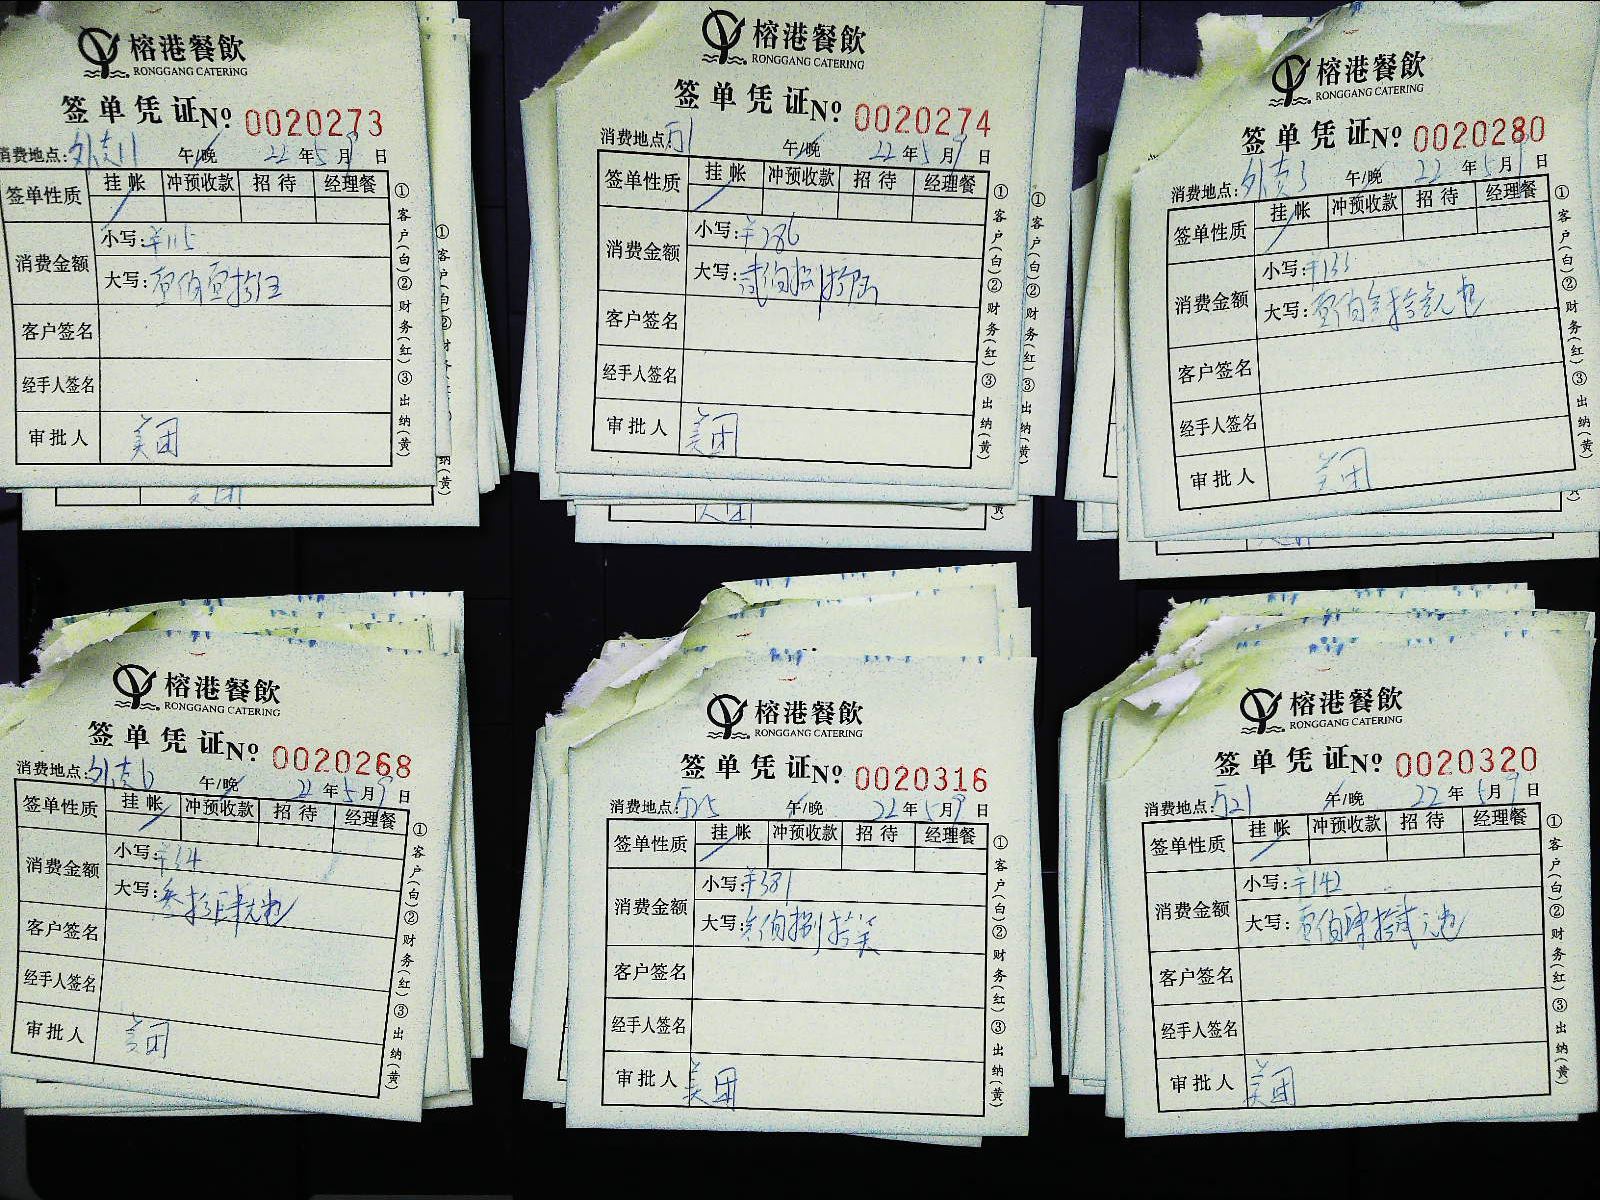 榕港餐飲
RONGGANG CATERING
签单凭证№ 0020273
消费地点:外卖11 午/晚 22年5月9日
签单性质 挂帐 冲预收款 招待 经理餐
消费金额 小写:¥115
大写:壹佰壹拾伍
客户签名
经手人签名
审批人 美团
①客户(白)②财务(红)③出纳(黄)
榕港餐飲
RONGGANG CATERING
签单凭证№ 0020274
消费地点:万1 午/晚 22年5月9日
签单性质 挂帐 冲预收款 招待 经理餐
消费金额 小写:¥286
大写:贰佰捌拾陆
客户签名
经手人签名
审批人 美团
①客户(白)②财务(红)③出纳(黄)
榕港餐飲
RONGGANG CATERING
签单凭证№ 0020280
消费地点:外卖3 午/晚 22年5月9日
签单性质 挂帐 冲预收款 招待 经理餐
消费金额 小写:¥133
大写:壹佰叁拾叁元正
客户签名
经手人签名
审批人 美团
①客户(白)②财务(红)③出纳(黄)
榕港餐飲
RONGGANG CATERING
签单凭证№ 0020268
消费地点:外卖6 午/晚 22年5月9日
签单性质 挂帐 冲预收款 招待 经理餐
消费金额 小写:¥34
大写:叁拾肆元正
客户签名
经手人签名
审批人 美团
①客户(白)②财务(红)③出纳(黄)
榕港餐飲
RONGGANG CATERING
签单凭证№ 0020316
消费地点:万25 午/晚 22年5月9日
签单性质 挂帐 冲预收款 招待 经理餐
消费金额 小写:¥381
大写:叁佰捌拾壹
客户签名
经手人签名
审批人 美团
①客户(白)②财务(红)③出纳(黄)
榕港餐飲
RONGGANG CATERING
签单凭证№ 0020320
消费地点:万21 午/晚 22年5月9日
签单性质 挂帐 冲预收款 招待 经理餐
消费金额 小写:¥142
大写:壹佰肆拾贰元正
客户签名
经手人签名
审批人 美团
①客户(白)②财务(红)③出纳(黄)